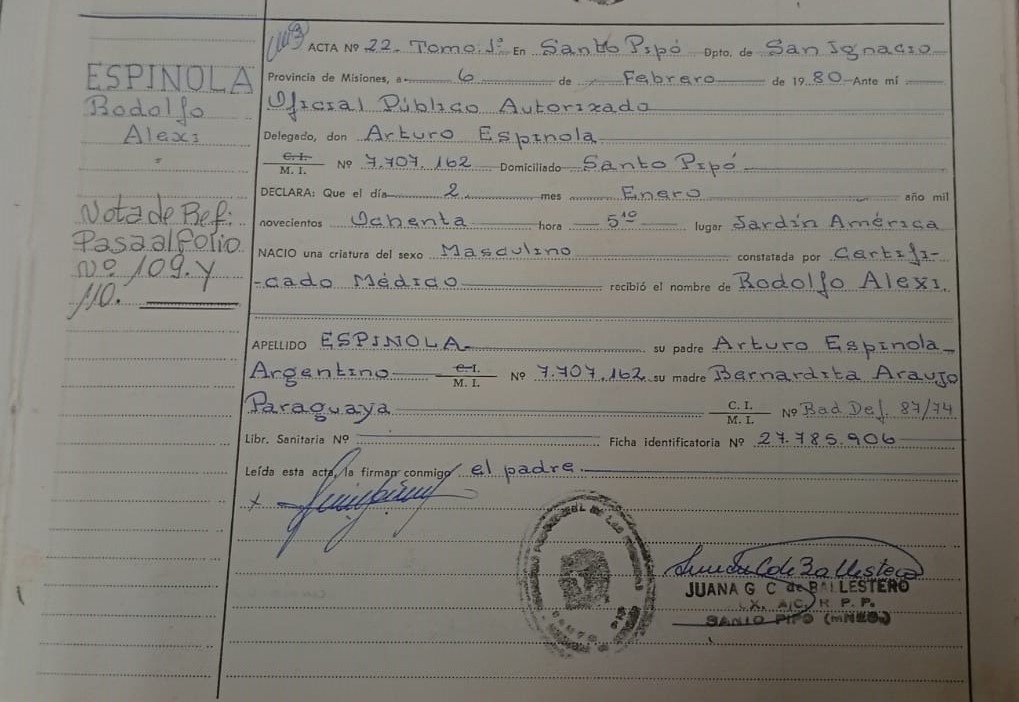 ESPINOLA
Rodolfo
Alexi
Nota de Ref:
Pasa al folio
Nº 109. y
110.
ACTA Nº 22 - Tomo 1º En Santo Pipó Dpto. de San Ignacio
Provincia de Misiones, a 6 de Febrero de 1980 Ante mí
Oficial Público Autorizado
Delegado, don Arturo Espinola
C.I.
M. I. Nº 7.707.162 Domiciliado Santo Pipó
DECLARA: Que el día 2 mes Enero año mil
novecientos Ochenta hora 5 10 lugar Jardín América
NACIO una criatura del sexo Masculino constatada por Certifi-
-cado Médico recibió el nombre de Rodolfo Alexi.
APELLIDO ESPINOLA su padre Arturo Espinola
Argentino C.I.
M. I. Nº 7.707.162 su madre Bernardita Araujo
Paraguaya C. I.
M. I. Nº Bad Def. 87/74
Libr. Sanitaria Nº Ficha identificatoria Nº 27.785.906
Leída esta acta, la firman conmigo el padre.
JUANA G C de BALLESTERO
SANTO PIPO (mnes)